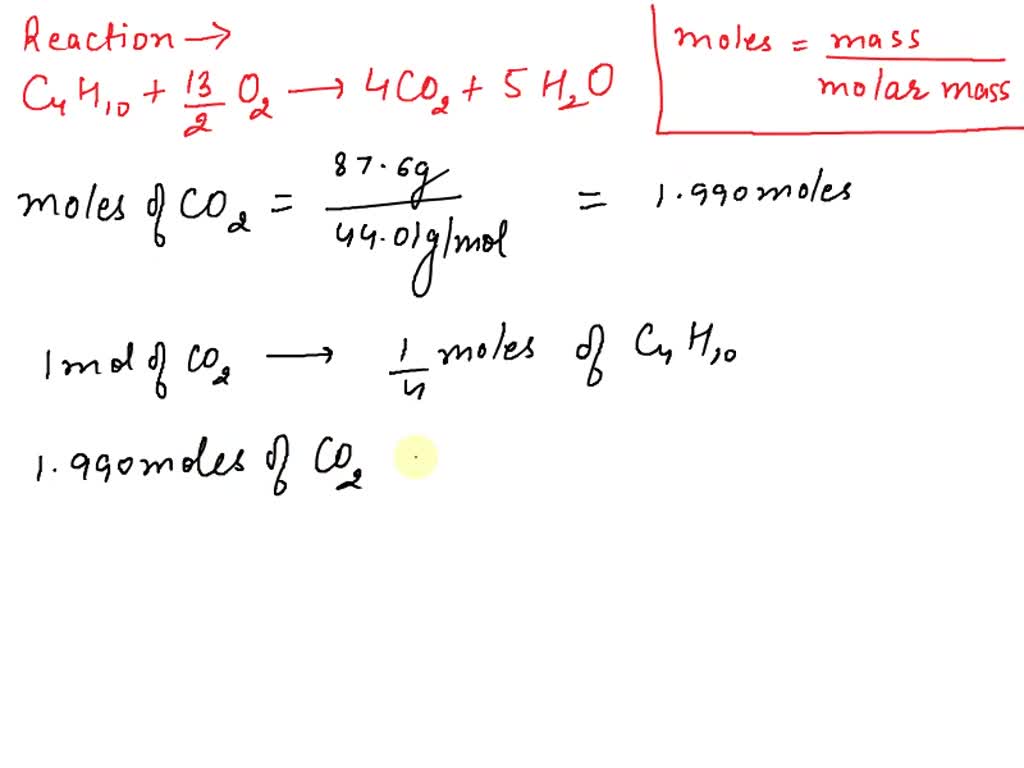 Reaction →
C4H10 + 13/2 O2 → 4CO2 + 5H2O
moles = mass / molar mass
moles of CO2 = 87.6g / 44.01g/mol = 1.990moles
1 mol of CO2 → 1/4 moles of C4H10
1.990moles of CO2